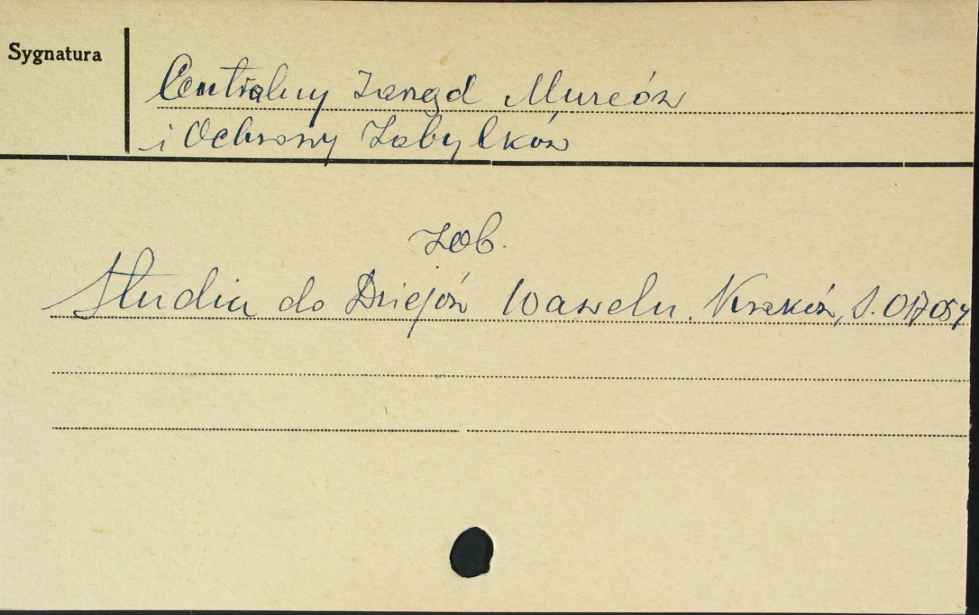 Sygnatura
Centralny Zarząd Muzeów
i Ochrony Zabytków
Zob.
Studia do Dziejów Wawelu. Kraków, S.